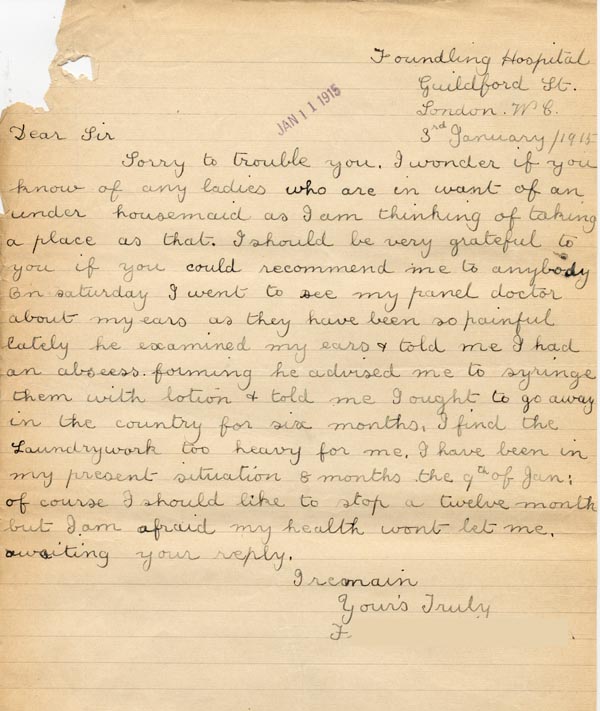 Foundling Hospital
Guildford St.
London. W C.
JAN 11 1915
3rd January/1915
Dear Sir
Sorry to trouble you. I wonder if you
know of any ladies who are in want of an
under housemaid as I am thinking of taking
a place as that. I should be very grateful to
you if you could recommend me to anybody
On saturday I went to see my panel doctor
about my ears as they have been so painful
lately he examined my ears & told me I had
an abscess. forming he advised me to syringe
them with lotion & told me I ought to go away
in the country for six months. I find the
Laundrywork too heavy for me. I have been in
my present situation 8 months the 9th of Jan:
of course I should like to stop a twelve month
but I am afraid my health wont let me.
awaiting your reply.
I remain
Your's Truly
F